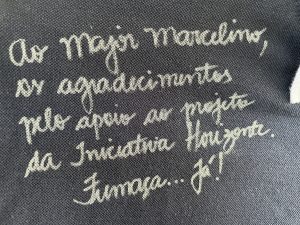 Ao Major Marcelino,
os agradecimentos
pelo apoio ao projeto
da Iniciativa Horizonte.
Fumaça... Já!